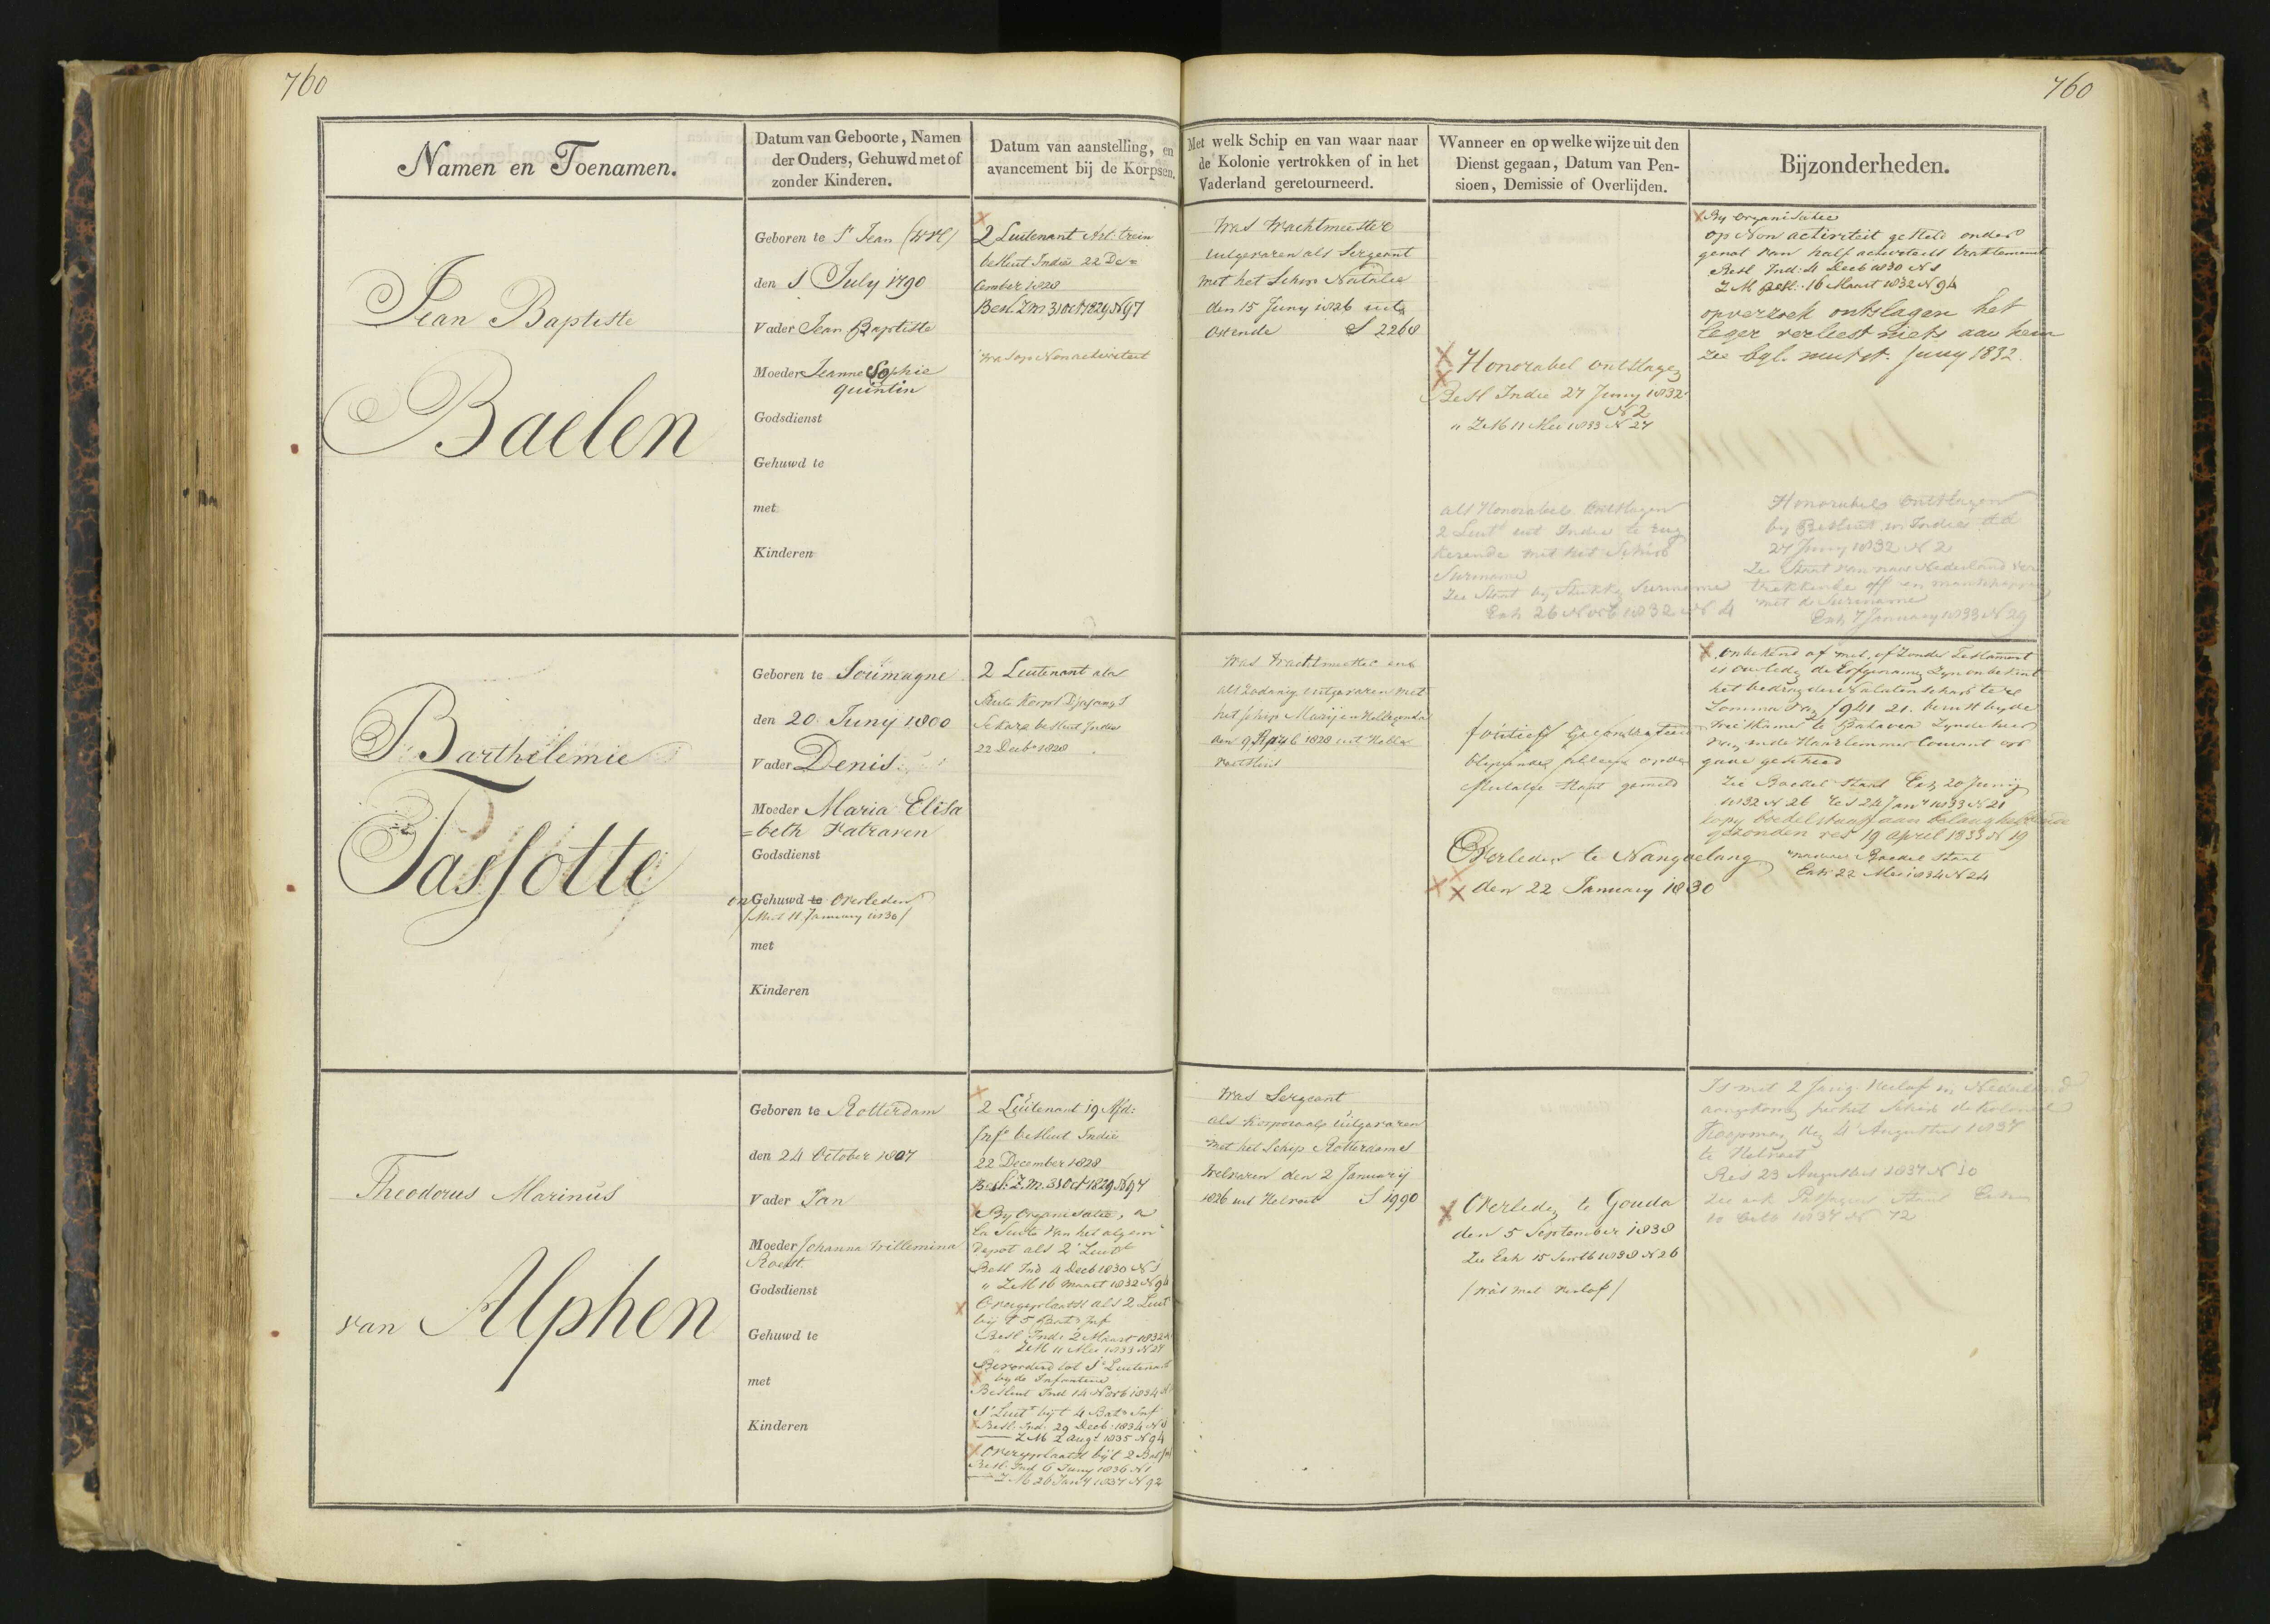 760
760
Namen en Toenamen.
Datum van Geboorte, Namen
der Ouders, Gehuwd met of
zonder Kinderen.
Datum van aanstelling, en
avancement bij de Korpsen.
Met welk Schip en van waar naar
de Kolonie vertrokken of in het
Vaderland geretourneerd.
Wanneer en op welke wijze uit den
Dienst gegaan, Datum van Pen-
sioen, Demissie of Overlijden.
Bijzonderheden.
Jean Baptiste
Baelen
Geboren te St Jean
den 1 July 1790
Vader Jean Baptiste
Moeder Jeanne Sophie
quintin
Godsdienst
Gehuwd te
met
Kinderen
2 Luitenant Art. trein
besluit Indië 22 De=
cember 1828
Besl. Z.M. 31 Oct 1829 N 97
was op Non activiteit
Was Wachtmeester
uitgevaren als Sergeant
met het Schip Natalie
den 15 Juny 1826 uit
Ostende S 2268
Honorabel ontslagen
Besl Indie 27 Juny 1832
N 2
" ZM 11 Mei 1833 N 27
als Honorabel ontslagen
2 Luit uit Indie te rug
kerende met het Schip
Suriname
Zie Staat by Stukken Suriname
Exh 26 Novb 1832 N 4
By organisatie
op Non activiteit gesteld onder
genot van half activiteits traktement
Besl Ind: 4 Decb 1830 N 1
Z M Besl. 16 Maart 1832 N 94
op verzoek ontslagen het
leger verliest niets aan hem
zie Juny 1832.
Honorabel ontslagen
by Besluit in Indie dd
27 Juny 1832 N 2
Zie Staat van naar Nederland ver
trekkende off en manschappen
met de Suriname
Exh 7 January 1833 N 29
Barthélemie
Tassotte
Geboren te Soumagne
den 20 Junij 1800
Vader Denis
Moeder Maria Elisa
=beth
Godsdienst
Gehuwd te Overleden
January 1830/
met
Kinderen
2 Luitenant ala
Suite
besluit Indie
22 Decb 1828
Was Wachtmeester en
als zodanig uitgevaren met
het schip
1828 uit
foutief
gemeld
Overleden te
den 22 January 1830
onbekend of met of zonder Testament
is overleden de Erfgenamen zyn onbekent
het bedrag der Nalatenschap ter
Somma van f 941 21. berust by de
Weeskamer te Batavia zynde hier
van in de Haarlemmer Courant op
gave geschied
Zie Boedel Staat Exh 20 Junij
1832 N 26 Res 24 Jany 1833 N 21
copy boedelstaat aan belanghebbende
gezonden res 19 april 1833 N 19
nadere Boedel Staat
Exh 22 Mei 1834 N 24
Theodorus Marinus
van Alphen
Geboren te Rotterdam
den 24 October 1807
Vader Jan
Moeder Johanna Willemina
Godsdienst
Gehuwd te
met
Kinderen
2 Luitenant 19 Afd:
Infe besluit Indië
22 December 1828
Besl: Z.M. 31 Oct 1829 N 97
By Organisatie, a
la Suite van het algem
depot als 2 Luit
Besl Ind 4 Decb 1830 N 1
" ZM 16 Maart 1832 N 94
Overgeplaatst als 2 Luit
bij 't 5 Bat Inf
Besl Ind: 2 Maart 1832
ZM 11 Mei 1833 N 27
Bevorderd tot 1e Luitenant
by de Infanterie
Besluit Ind 14 Novb 1834
1e Luit bij 't 4 Batn Inf
Besl. Ind: 29 Decb: 1834 N 1
ZM 2 Augt 1835 N 94
Overgeplaatst bij 't 2 Bat
Besl. Ind 6 Juny 1836 N 1
ZM 26 Jany 1837 N 92
Was Sergeant
als Korporaal uitgevaren
met het Schip Rotterdams
Welvaren den 2 Januarij
1826 uit Helvoet S 1990
Overleden te Gouda
den 5 September 1838
Zie Exh 15 Septb 1838 N 26
/was met verlof/
Is met 2 Jarig verlof in Nederland
aangekomen per het Schip de Kolonel
Koopman den 4 Augustus 1837
te Helvoet
Res 23 Augustus 1837 N 10
Zie ook Passagiers Staat Exh
10 Octb 1837 N 72